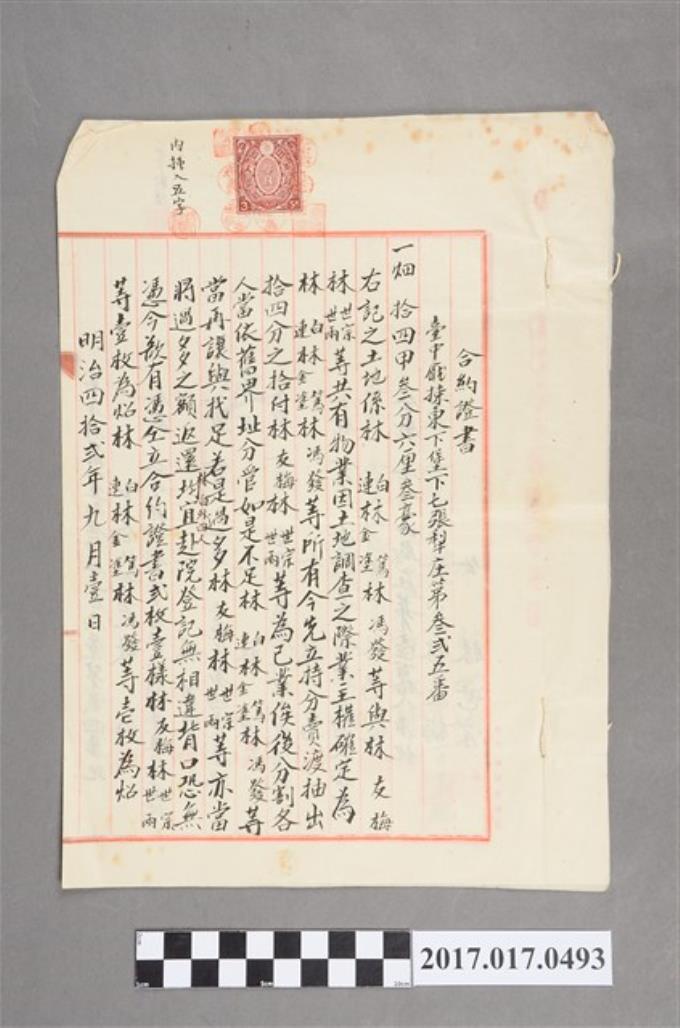 內歸入五字
合約證書
臺中廳揀東下堡下七張犁庄第叁弍五番
一畑 拾四甲叁分六厘叁豪
右記之土地係林白連林金篤塗林馮發等與林友梅
林世宗世兩等共有物業因土地調查之際業主權確定為
林白連林金篤塗林馮發等所有今先立持分賣渡抽出
拾四分之拾付林友梅林世宗世兩等為己業俟後分割各
人當依舊界址分管如是不足林白連林金篤塗林馮發等
當再讓與找足若是過多林友梅林世宗世兩等亦當
將過多之額返還均宜赴院登記無相違背口恐無
憑今欲有憑仝立合約證書弍枚壹樣林友梅林世宗世兩
等壹枚為炤林白連林金篤塗林馮發等壱枚為炤
明治四拾弍年九月壹日
3
2017.017.0493